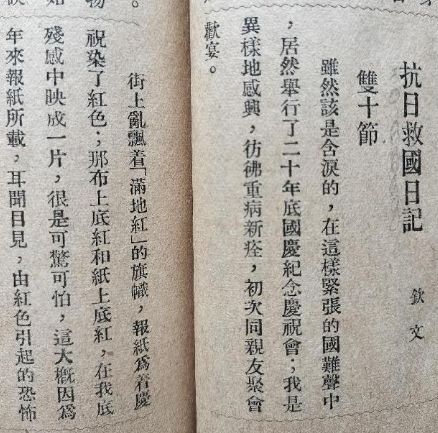 抗日救國日記
欽文
雙十節
雖然該是含淚的，在這樣緊張的國難聲中
，居然舉行了二十年底國慶紀念慶祝會；我是
異樣地感興，彷彿重病新痊，初次同親友聚會
歡宴。
街上亂飄着「滿地紅」的旗幟，報紙爲着慶
祝染了紅色；那布上底紅和紙上底紅，在我底
殘感中映成一片，很是可驚可怕，這大概因爲
年來報紙所載，耳聞目見，由紅色引起的恐怖